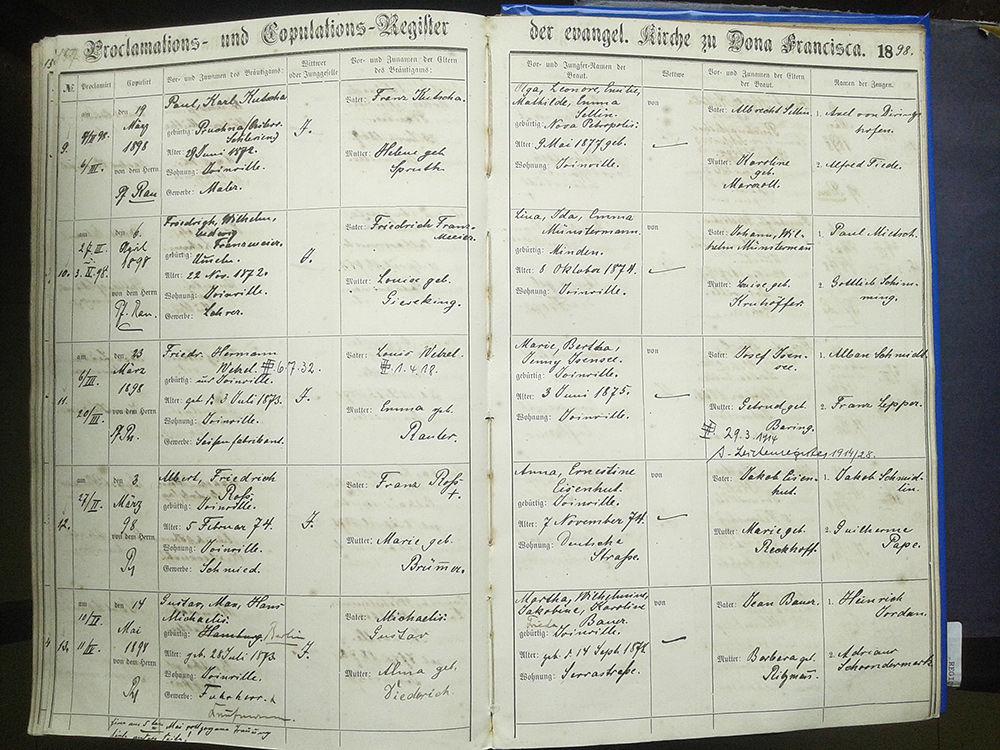 Proclamations- und Copulations-Register der evangel. Kirche zu Dona Francisca. 1898.
№ Proclamiert Copuliert Vor- und Zunamen des Bräutigams: Wittwer oder Junggeselle Vor- und Zunamen der Eltern des Bräutigams:
Vor- und Jungfer-Namen der Braut. Wittwe Vor- und Zunamen der Eltern der Braut. Namen der Zeugen.
9.
am
den 19
März
1898
4/III.
von dem Herrn
Pf. Rau
Paul, Karl Kutscha
gebürtig:
Schlesien)
Alter: 29 Juni 1872.
Wohnung: Joinville.
Gewerbe: Maler.
J.
Vater: Franz Kutscha.
Mutter: Helene geb
Spruth.
Olga, Leonore, Emilie,
Mathilde, Emma
Sellin.
gebürtig: Nova Petropolis
Alter: 9 Mai 1877 geb.
Wohnung: Joinville.
von
Vater: Albrecht Sellin
Mutter: Karoline
geb.
1. Axel von Diring-
hofen.
2. Alfred Tiede.
10.
am
27. III.
3. IV. 98.
den 6.
April
1898
von dem Herrn
Pf. Rau.
Friedrich, Wilhelm,
Ludwig
Franzmeier.
gebürtig:
Alter: 22 Nov. 1872.
Wohnung: Joinville.
Gewerbe: Lehrer.
J.
Vater: Friedrich Franz-
meier.
Mutter: Louise geb
Gieseking.
Lina, Ida, Emma
Münstermann.
gebürtig: Minden.
Alter: 8 Oktober 1874.
Wohnung: Joinville.
von
Vater: Johann, Wil-
helm Münstermann
Mutter: Luise geb.
Kruhöffer.
1. Paul Mietsch.
2. Gottlieb Schim-
ming.
11.
am
6/III.
20/III.
den 23
März
1898
von dem Herrn
Pf. R.
Friedr. Hermann
Wetzel. 6.7.32.
gebürtig: aus Joinville.
Alter: geb. d. 3 Juli 1873.
Wohnung: Joinville.
Gewerbe: Seifenfabrikant.
J.
Vater: Louis Wetzel.
1.4.18.
Mutter: Emma geb.
Rauter.
Marie, Bertha,
Jenny Isensee.
gebürtig: Joinville.
Alter: 3 Juni 1875.
Wohnung: Joinville.
von
Vater: Josef Isen-
see.
Mutter: Getrud geb.
Baring.
29.3.1914
s. Leichenregister 1914/28.
1. Alban Schmidt
2. Franz Lepper.
12.
am
27/II.
den 3.
März
98.
von dem Herrn
R
Albert, Friedrich
Ross.
gebürtig: Joinville.
Alter: 5 Februar 74.
Wohnung: Joinville.
Gewerbe: Schmied.
J.
Vater: Franz Ross
+.
Mutter: Marie geb.
Brümmer.
Anna, Ernestine
Eisenhut.
gebürtig: Joinville.
Alter: 7 November 74.
Wohnung: Deutsche
Straße.
von
Vater: Jakob Eisen-
hut.
Mutter: Marie geb.
Reckhoff.
1. Jakob Schmid-
lin.
2. Guilherme
Pape.
13.
am
den 14
Mai
von dem Herrn
R
Gustav, Max, Hans
Michaelis.
gebürtig: Hamburg, Berlin
Alter: geb. 28 Juli 1873.
Wohnung: Joinville.
Gewerbe: Fuhrherr.
Kaufmann.
J.
Vater: Michaelis
Gustav
Mutter: Alma geb.
Diederich.
Martha, Wilhelmine,
Jakobine, Karoline
Frieda Bauer.
gebürtig: Joinville.
Alter: geb. d. 14 Sept 1872
Wohnung: Serrastraße.
von
Vater: Jean Bauer.
Mutter: Barbara geb.
1. Heinrich
Jordan.
2. Adrian
Schoondermark